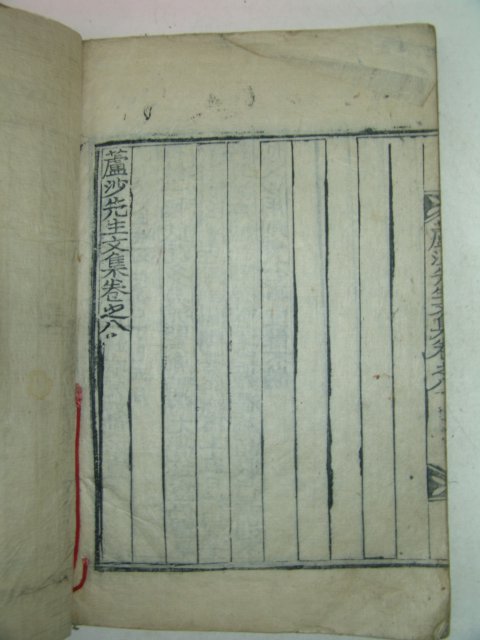 蘆沙先生文集卷之八
蘆沙先生文集卷之八